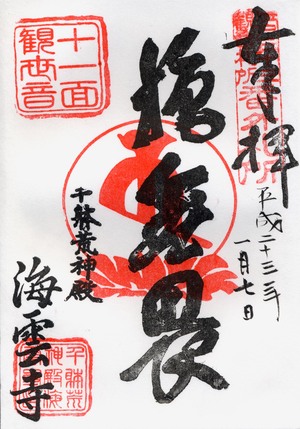 奉拝
平成二十三年
一月七日
施無畏
千躰荒神殿
海雲寺
十一面
観世音
千躰荒
神殿海